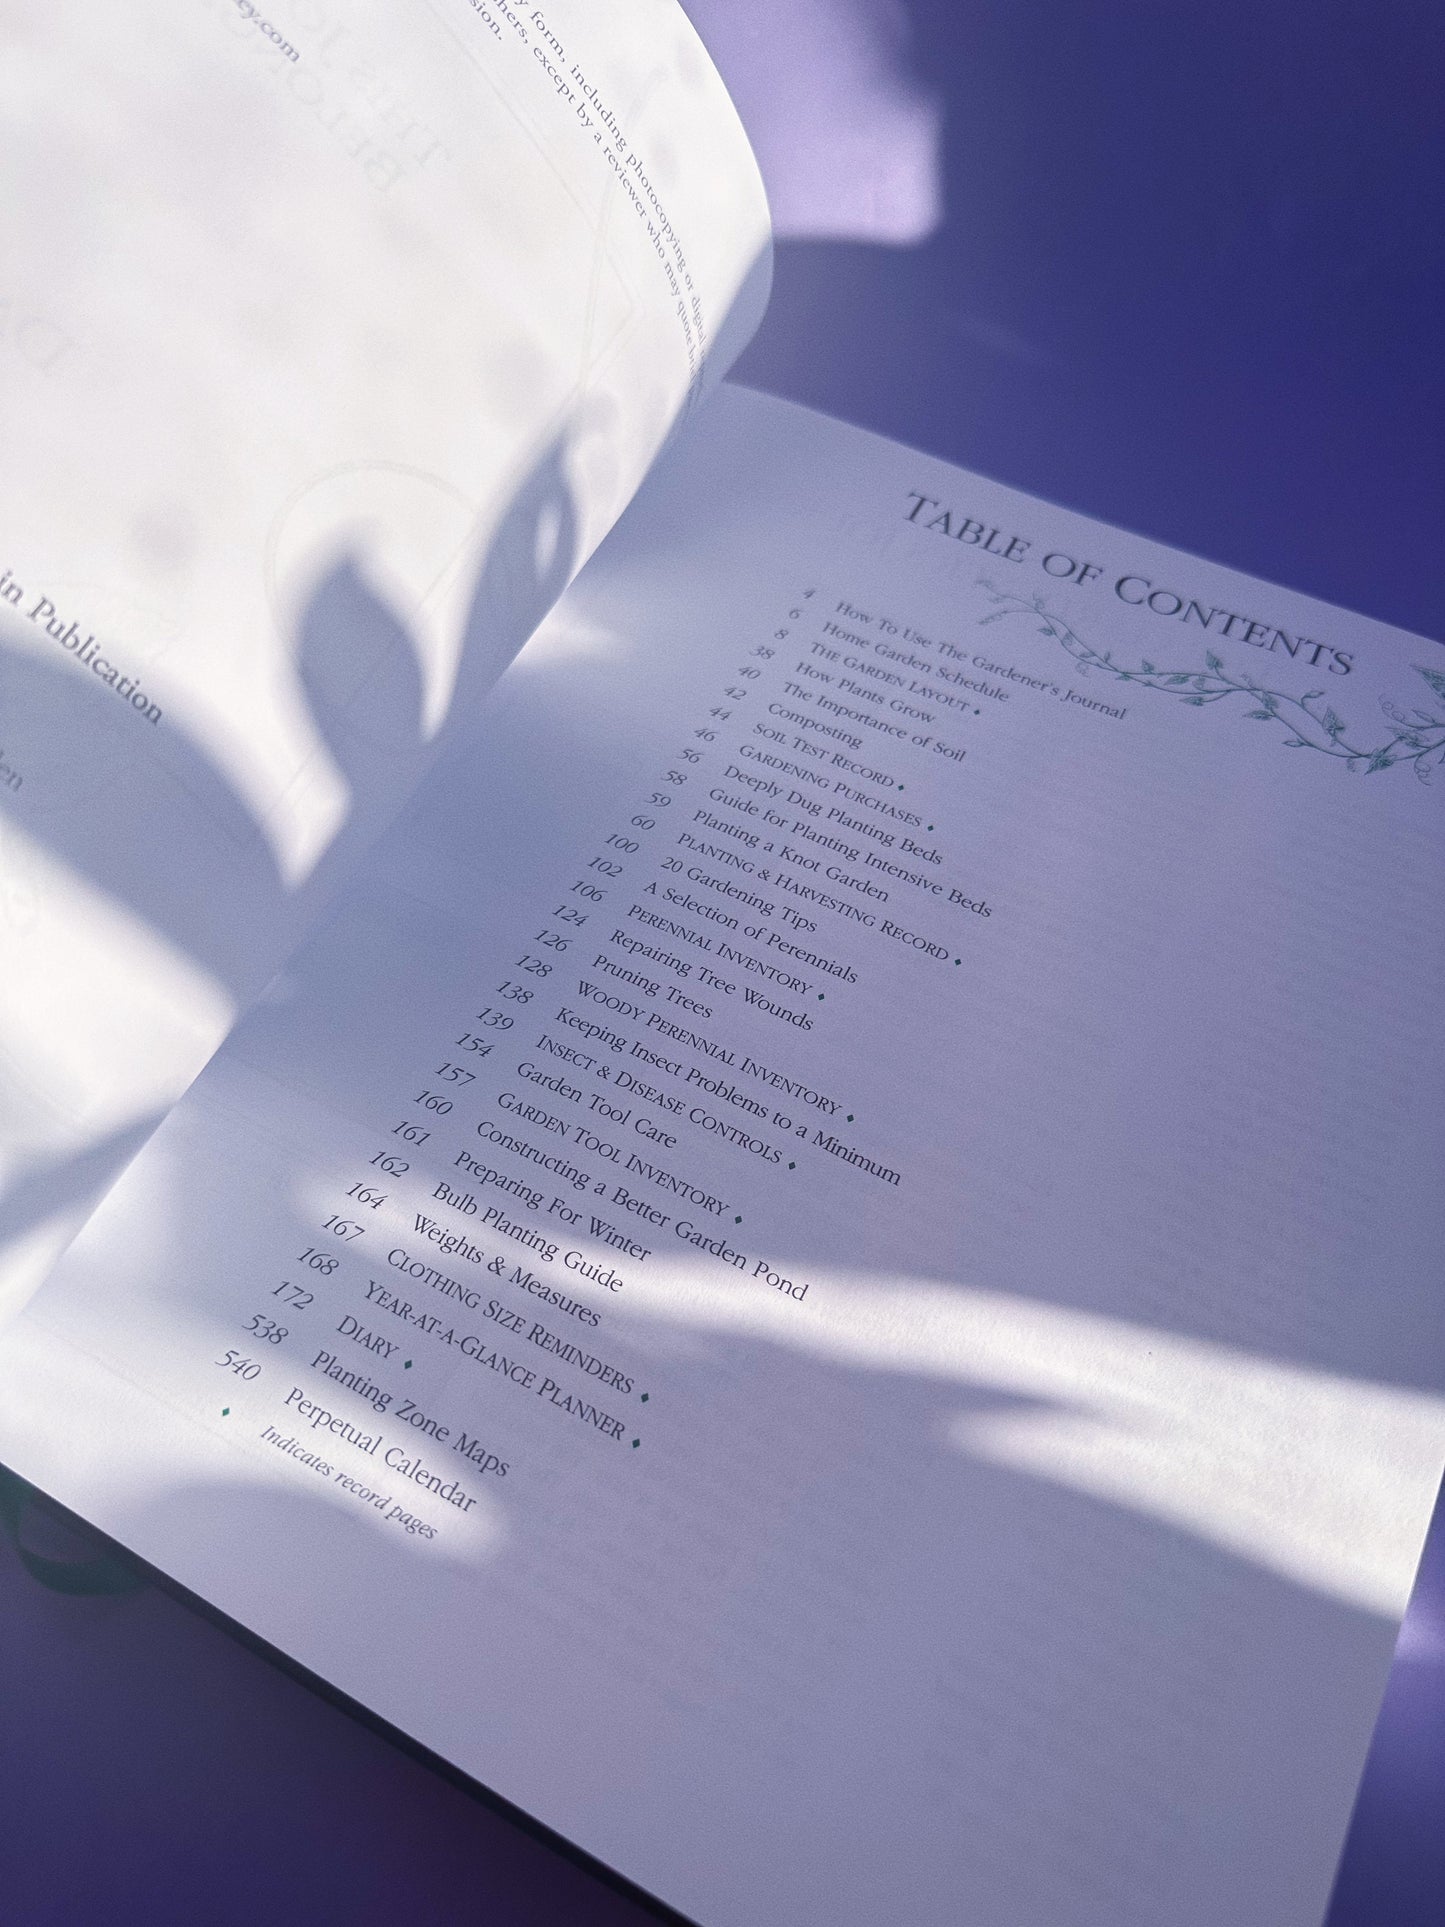 ey.com
y form, including photocopying or digital
hers, except by a reviewer who may quote
sion.
in Publication
en
TABLE OF CONTENTS
4 How To Use The Gardener's Journal
6 Home Garden Schedule
8 THE GARDEN LAYOUT ♦
38 How Plants Grow
40 The Importance of Soil
42 Composting
44 SOIL TEST RECORD ♦
46 GARDENING PURCHASES ♦
56 Deeply Dug Planting Beds
58 Guide for Planting Intensive Beds
59 Planting a Knot Garden
60 PLANTING & HARVESTING RECORD ♦
100 20 Gardening Tips
102 A Selection of Perennials
106 PERENNIAL INVENTORY ♦
124 Repairing Tree Wounds
126 Pruning Trees
128 WOODY PERENNIAL INVENTORY ♦
138 Keeping Insect Problems to a Minimum
139 INSECT & DISEASE CONTROLS ♦
154 Garden Tool Care
157 GARDEN TOOL INVENTORY ♦
160 Constructing a Better Garden Pond
161 Preparing For Winter
162 Bulb Planting Guide
164 Weights & Measures
167 CLOTHING SIZE REMINDERS ♦
168 YEAR-AT-A-GLANCE PLANNER ♦
172 DIARY ♦
538 Planting Zone Maps
540 Perpetual Calendar
♦ Indicates record pages